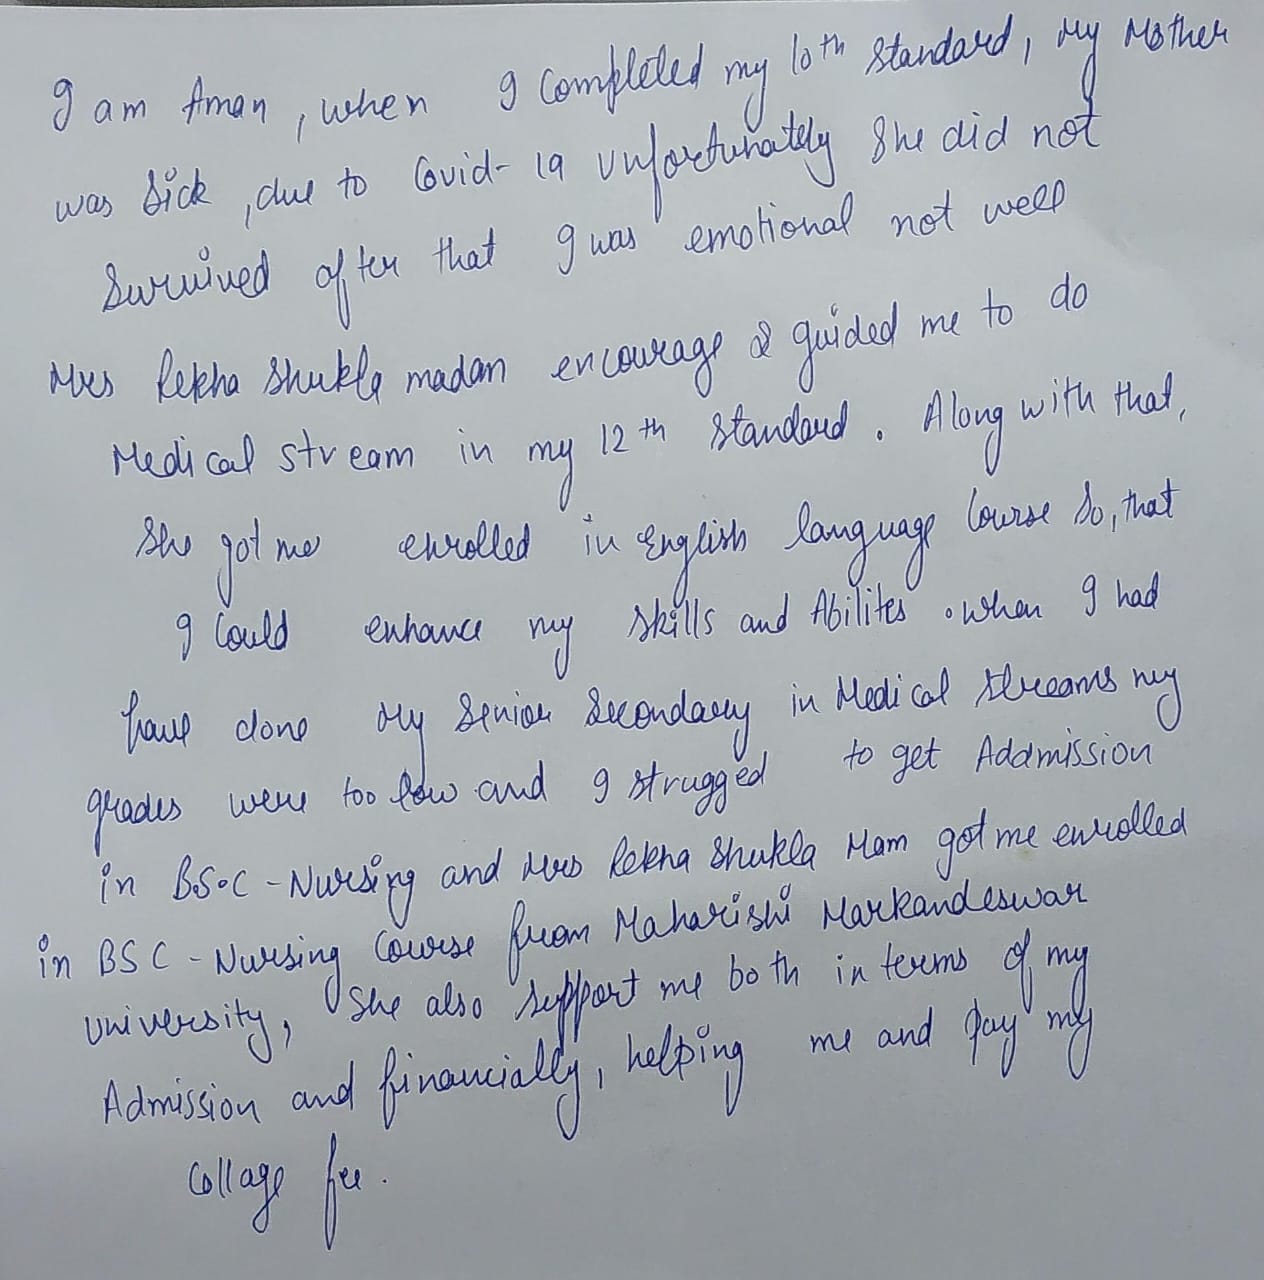 I am Aman, when I completed my 10th standard, My Mother
was sick, due to Covid-19 unfortunately she did not
survived after that I was emotional not well
Mrs Rekha Shukla madan encourage & guided me to do
Medical stream in my 12th standard. Along with that,
she got me enrolled in English language Course So, that
I Could enhance my skills and Abilites. when I had
have done My Senior Secondary in Medical streams my
grades were too low and I strugged to get Addmission
in BS.C - Nursing and Mrs Rekha Shukla Mam got me enrolled
in BSC - Nursing Course from Maharishi Markandeswar
University, She also support me both in terms of my
Admission and financially, helping me and pay my
Collage fee.